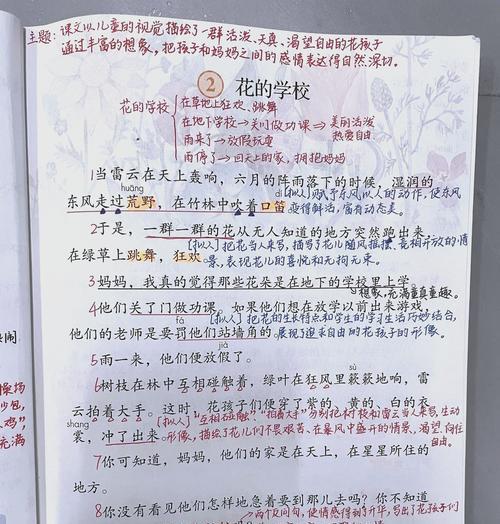 主题：课文以儿童的视觉描绘了一群活泼、天真、渴望自由的花孩子
通过丰富的想象，把孩子和妈妈之间的感情表达得自然、深切。
2 花的学校
花的学校
在草地上狂欢、跳舞
在地下学校→关门做功课→美丽活泼
热爱自由
雨来了→放假玩耍
雨停了→回天上的家，拥抱妈妈
1当雷云在天上轰响，六月的阵雨落下的时候，湿润的
huāng
dí
[拟人]赋予东风以人的动作，使东风
东风走过荒野，在竹林中吹着口笛
变得鲜活，富有动态美。
2于是，一群一群的花从无人知道的地方突然跑出来，
[拟人]把花当人来写，描写了花儿随风摇摆、竞相开放的情
在绿草上跳舞，狂欢。
景，表现花儿的喜悦和无拘无束。
3妈妈，我真的觉得那些花朵是在地下的学校里上学。
想象，充满童真童趣。
4他们关了门做功课。如果他们想在放学以前出来游戏，
fá
[拟人]把花的生长特点和学生的学习生活巧妙结合，
他们的老师是要罚他们站墙角的。
展现了追求自由的花孩子的形像。
jià
5雨一来，他们便放假了。
sù
6树枝在林中互相碰触着，绿叶在狂风里簌簌地响，雷
云拍着大手。这时，花孩子们便穿了紫的、黄的、白的衣
shang
[拟人]"互相碰触""拍着大手"分别把树枝和雷云当人来写，生动
裳，冲了出来。
形像，描绘了花儿们不畏艰苦、在暴风中盛开的情景，渴望、向往
自由。
7你可知道，妈妈，他们的家是在天上，在星星所住的
地方。
8你没有看见他们怎样地急着要到那儿去吗？你不知道
→两个反问句，使情感得到了升华，写出了孩子
闹
操场
沙包，
鸡"
充满